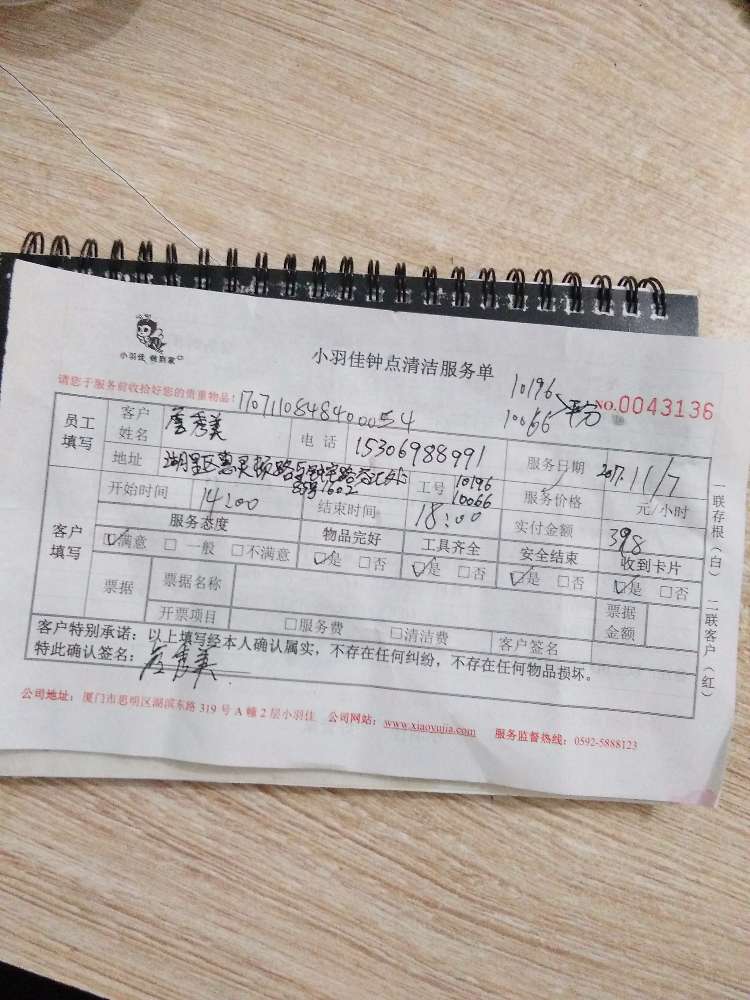 小羽佳 做到家
小羽佳钟点清洁服务单
10196
10066 平分
NO.0043136
请您于服务前收拾好您的贵重物品!
1707110848400054
员工填写 客户姓名 秀美 电话 15306988991 服务日期 2017.11/7
地址 湖里区惠灵顿路与 路交汇处 1602 工号 10196 10066 服务价格 元/小时
客户填写 开始时间 14:00 结束时间 18:00 实付金额 398
服务态度 物品完好 工具齐全 安全结束 收到卡片
☑满意 □ 一般 □不满意 ☑是 □否 ☑是 □否 ☑是 □否 ☑是 □否
票据 票据名称 票据金额
开票项目 □服务费 □清洁费 客户签名
客户特别承诺:以上填写经本人确认属实,不存在任何纠纷,不存在任何物品损坏。
特此确认签名: 秀美
一联存根(白) 二联客户(红)
公司地址:厦门市思明区湖滨东路 319 号 A 幢 2 层小羽佳 公司网站:www.xiaoyujia.com 服务监督热线:0592-5888123